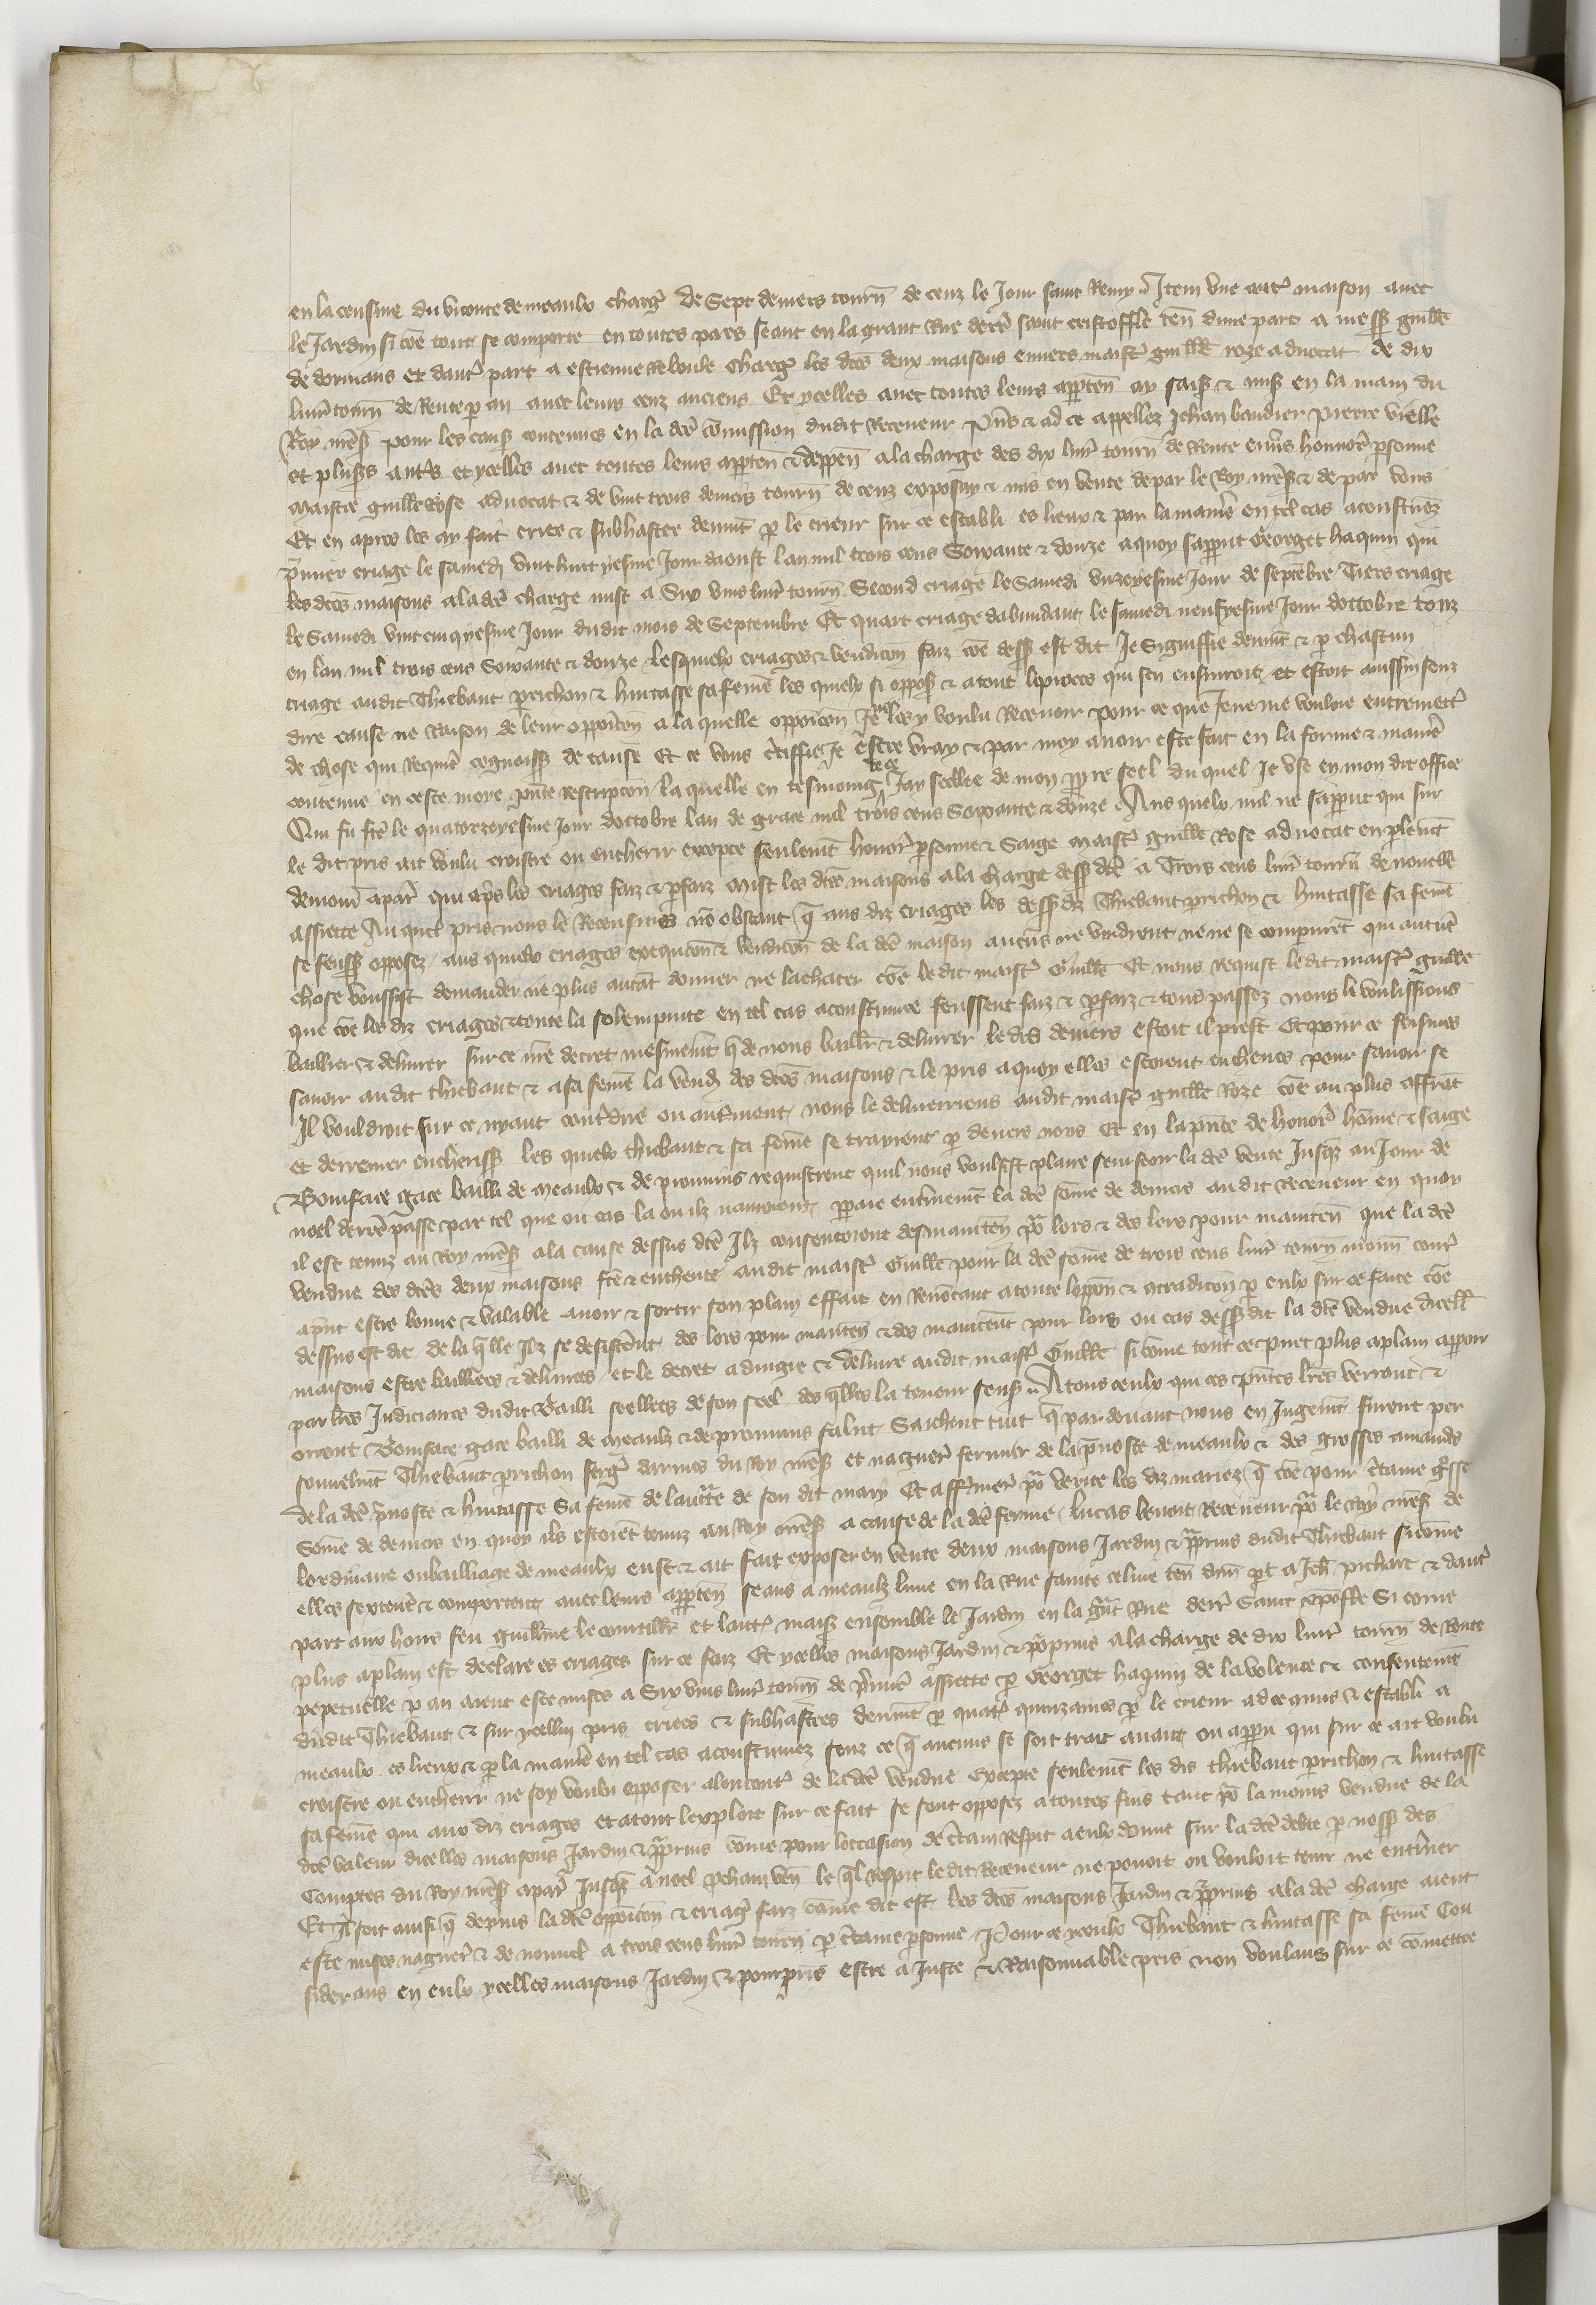 en la censive du viconte de meaulx charg̃ de Sept deniers tourn̄ de cenz le Jour saint Remy Item vne autr̃ maison auec
le Jardin si cõe tout se comporte en toutes pars seant en la grant Rue derr̃ saint cristoffle ten̄ dune part a mess̃ guille
de dormans et dautr̃ part a estienne charg̃ les d̃ces deux maisons enuers maistr̃ guille roze aduocat de dix
liur̃ tourn̄ de Rente p̱ an auec leurs cenz anciens Et ycelles auec toutes leurs app̱ten̄ ay saiss̃ & miss̃ en la main du
Roy nr̃es̃ pour les causs̃ contenues en la d̃ce cõmission dudit Receueur p̃ns & ad ce appellez Jehan baudier pierre vielle
et plus̃s autr̃s et ycelles auec toutes leurs app̱ten̄ & appen̄ a la charge des dix liur̃ tourn̄ de Rente enũs honnor̃ p̱sonne
maistre guille Rose aduocat & de vint trois deniers tourn̄ de cenz exposay & mis en vente de par le Roy nr̃es̃ & de par vous
Et en apres les ay fait criez & subhaster deuem̃t p̱ le crieur sur ce establi es lieux & par la maniẽ en tel cas acoustumez
p̃mier criage le samedi vint huit yesme Jour daoust lan mil trois cens Soixante & douze a quoy sapparut Georget haquin qui
les d̃ces maisons a la d̃ce charge mist a Six vins liur̃ tourn̄ Second criage le Samedi vnzeyesme Jour de septẽbre Tiers criage
le Samedi vint cinqyesme Jour dudit mois de Septembre Et quart criage dabundant le samedi neufyesme Jour doctobre touz
en lan mil trois cens Soixante & douze lesquielx criages & vendicõn faiz cõe dess̃ est dit Je Signiffie deuem̃t & p̱ chascun
criage audit Thiebaut perichon & huitasse sa femẽ les quielx si opposs̃ & a tout lexploiz qui sen ensiuroit et estoit aussi senz
dire cause ne Raison de leur oppoicõn a la quelle oppoicõn Je ne les y voulu Receuoir pour ce que Je ne me vouloie entremetr̃
de chose qui Requier̃ cognoiss̃ de cause Et ce vous c̃tiffie Je estre vray & par moy auoir este fait en la forme & maniẽ
contenue en ceste moye p̃nte rescripcõn la quelle en tesmoing de ce Jay seellee de mon ppre seel du quel Je vse en mon dit office
Qui fu fce le quatorzeyesme Jour doctobre lan de grace mil trois cens Soixante & douze Aus quelx nul ne sapparut qui sur
le dit pris ait voulu croistre ou encherir excepte seulem̃t honor̃ p̱sonne & Saige maistr̃ guille Rose aduocat en plem̃t
demour̃ a par̃ qui ap̃s les criages faiz & p̱faiz mist les d̃ces maisons a la charge dess̃ d̃ce a Trois cens liur̃ tourn̄ de nouuelle
assiette Au quel pris nous le Receusmes nõ obstant q̃ aus diz criages les dess̃diz Thiebaut perichon & huitasse sa fem̃e
se feuss̃ opposez aus quielx criages exequcõn & vendicõn de la d̃ce maison aucuns ne vindrent ne ne se comparurẽt qui aucune
chose voussist demander ne plus autãt donner ne lachater cõe le dit maistr̃ Guille Et nous Requist le dit maistr̃ guille
que cõe les diz criages & toute la solempnite en tel cas acoustumee feussent faiz & p̱faiz & tous passez nous li voulissions
baillier & deliurer sur ce nr̃e decret mesmem̃t q̃ de nous baill̃ & deliurer le ded deniers estoit il prest Et pour ce feismes
sauoir au dit thiebaut & a sa femẽ la vend̃ des d̃ces maisons & le pris a quoy elles estoient encherues pour sauoir se
Il vouldroit sur ce riens contr̃dire ou autrement nous le deliuerriens au dit maistr̃ guille Roze cõe au plus offrãt
et derrenier encheriss̃ les quielx thiebaut & sa femẽ se trayrent p̱ deuers nous Et en la p̃nce de honor̃ hõme & saige
Boniface gace bailli de meaulx & de prouuins requistrent quil nous voulsist plaire surseoir la d̃ce vente Jusq̃z au Jour de
noel derreñ passe par tel que ou cas la ou ilz nauroient paie entierem̃t la d̃ce sõme de deniers audit Receueur en quoy
il est tenuz au Roy nr̃es̃ a la cause dessus d̃ce Ilz consentirent desmainten̄ po̱ lors & des lors pour mainten̄ que la d̃ce
vendue des d̃ces deux maisons fce & encherie au dit maistr̃ Guille pour la d̃ce sõme de trois cens liur̃ tourn̄ monñ cour̃
ap̃nt estre bonne & valable auoir & sortir son plain effait en Renõcant a toute loppõn & 9tradicõn p̱ eulx sur ce faite cõe
dessus est dit de la q̃lle Ilz se desisterẽt des lors pour mainten̄ & des maintenãt pour lors ou cas dess̃ dit la d̃ce vendue dicell̃
maisons estre bailliees & deliurees et le decret adiugie & deliure audit maistr̃ Guille si cõme tout ce puet plus a plain apparoir
par lr̃es Judiciaires dudit Bailli seellees de son seel des q̃lles la teneur sensuit Atous ceulx qui ces p̃ntes lr̃es verront &
orront Boniface gace bailli de meaulx & de prouuins salut Saichent tuit q̃ par deuant nous en Jugem̃t furent per
sonnelm̃t Thiebaut perichon serg̃ darmes du Roy nr̃es̃ et nagueir̃ fermier de la p̃uoste de meaulx & des grosses amendes
de la d̃ce p̃uoste & huitasse Sa femẽ de lauctt̃e de son dit mary Et affermer̃ po̱ verite les diz mariez q̃ cõe pour c̃taine g̃sse
Sõme de deniers en quoy ils estoiẽt tenuz au Roy nr̃es̃ a cause de la d̃ce ferme lucas benoit Receueur po̱ le Roy nr̃es̃ de
lordinaire ou bailliage de meaulx eust & ait fait exposer en vente deux maisons Jardin & pp̱ris dudit Thiebaut si cõme
elles se extendr̃ & comportent auec leurs app̱ten̄ seans a meaulx lune en la Rue sainte celine ten̄ dun̄ p̱t a Jeh̃ pichart & dautr̃
part aux hoirs feu guillẽme le courtill̃ et lautr̃ maisõ ensemble le Jardin en la g̃nt Rue derr̃ Saint xp̃ofle Si cõme
plus a plain est declare es criages sur ce faiz Et ycelles maisons Jardin & pp̱rins a la charge de dix liur̃ tourn̄ de Rente
pepetuelle p̱ an aient este mises a Six vins liur̃ tourn̄ de p̃miere assiette p̱ Georget haquin de la volente & consentem̃t
dudit Thiebaut & sur ycelluy pris criees & subhastees deuem̃t p̱ quatr̃ quinzaines p̱ le crieur ad ce cõmis & establi a
meaulx es lieux & p̱ la maniẽ en tel cas acoustumez senz ce q̃ aucuns se soit trait auant ou apparu qui sur ce ait voulu
croistre ou encherir ne soy voulu opposer alencontr̃ de la d̃ce vendue Excepte seulem̃t les dis thiebaut perichon & huitasse
sa femẽ qui aux diz criages et a tout lexploit sur ce fait se sont opposez a toutes fins tant po̱ la moins vendue de la
d̃ce valeur dicelles maisons Jardin & pp̱rins cõme pour loccasion de c̃tain Respit a eulx donne sur la d̃ce debte p̱ noss̃ des
Comptes du Roy nr̃es̃ a par̃ Jusq̃z a noel p̱chain ven̄ le q̃l Respit le dit Receueur ne pouoit ou vouloit tenir ne enteriner
Et Il soit ainsi q̃ depuis la d̃ce oppoicõn & criag̃ faiz cõme dit est les d̃ces maisons Jardin & pp̱rins a la d̃ce charge aient
este mises nagueir̃ & de nouuel a trois cens liur̃ tourn̄ p̱ c̃taine p̱sonne Pour ce yceulx Thiebaut & huitasse sa femẽ Con
siderans en eulx ycelles maisons Jardin & pourpris estre a Juste & Raisonnable pris non voulans sur ce cõmettre